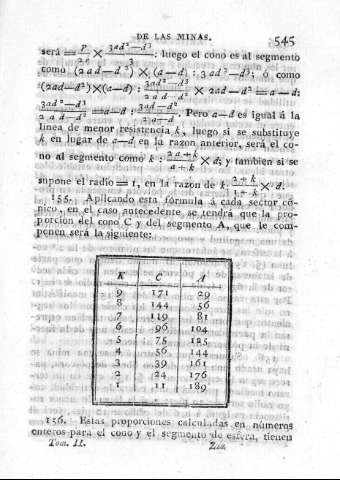 DE LAS MINAS. 545
será = p/2c × 3ad²−d³/3 : luego el cono es al segmento
como (2ad−d²) × (a−d) : 3ad²−d³; ó como
(2ad−d²)×(a−d) : 3ad²−d³/2ad−d² × 2ad−d² = a−d:
3ad²−d³/2ad−d² = a−d : 3ad−d²/2a−d. Pero a−d es igual á la
linea de menor resistencia k, luego si se substituye
k en lugar de a−d en la razon anterior, será el co-
no al segmento como k : 2a+k/a+k × d; y tambien si se
supone el radio = 1, en la razon de k. 2+k/1+k × d.
155. Aplicando esta fórmula á cada sector có-
nico, en el caso antecedente se tendrá que la pro-
porcion del cono C y del segmento A, que le com-
ponen será la siguiente:
K C A
9 171 29
8 144 56
7 119 81
6 96 104
5 75 125
4 56 144
3 39 161
2 24 176
1 11 189
156. Estas proporciones calculadas en números
enteros para el cono y el segmento de esfera, tienen
Tom. II.